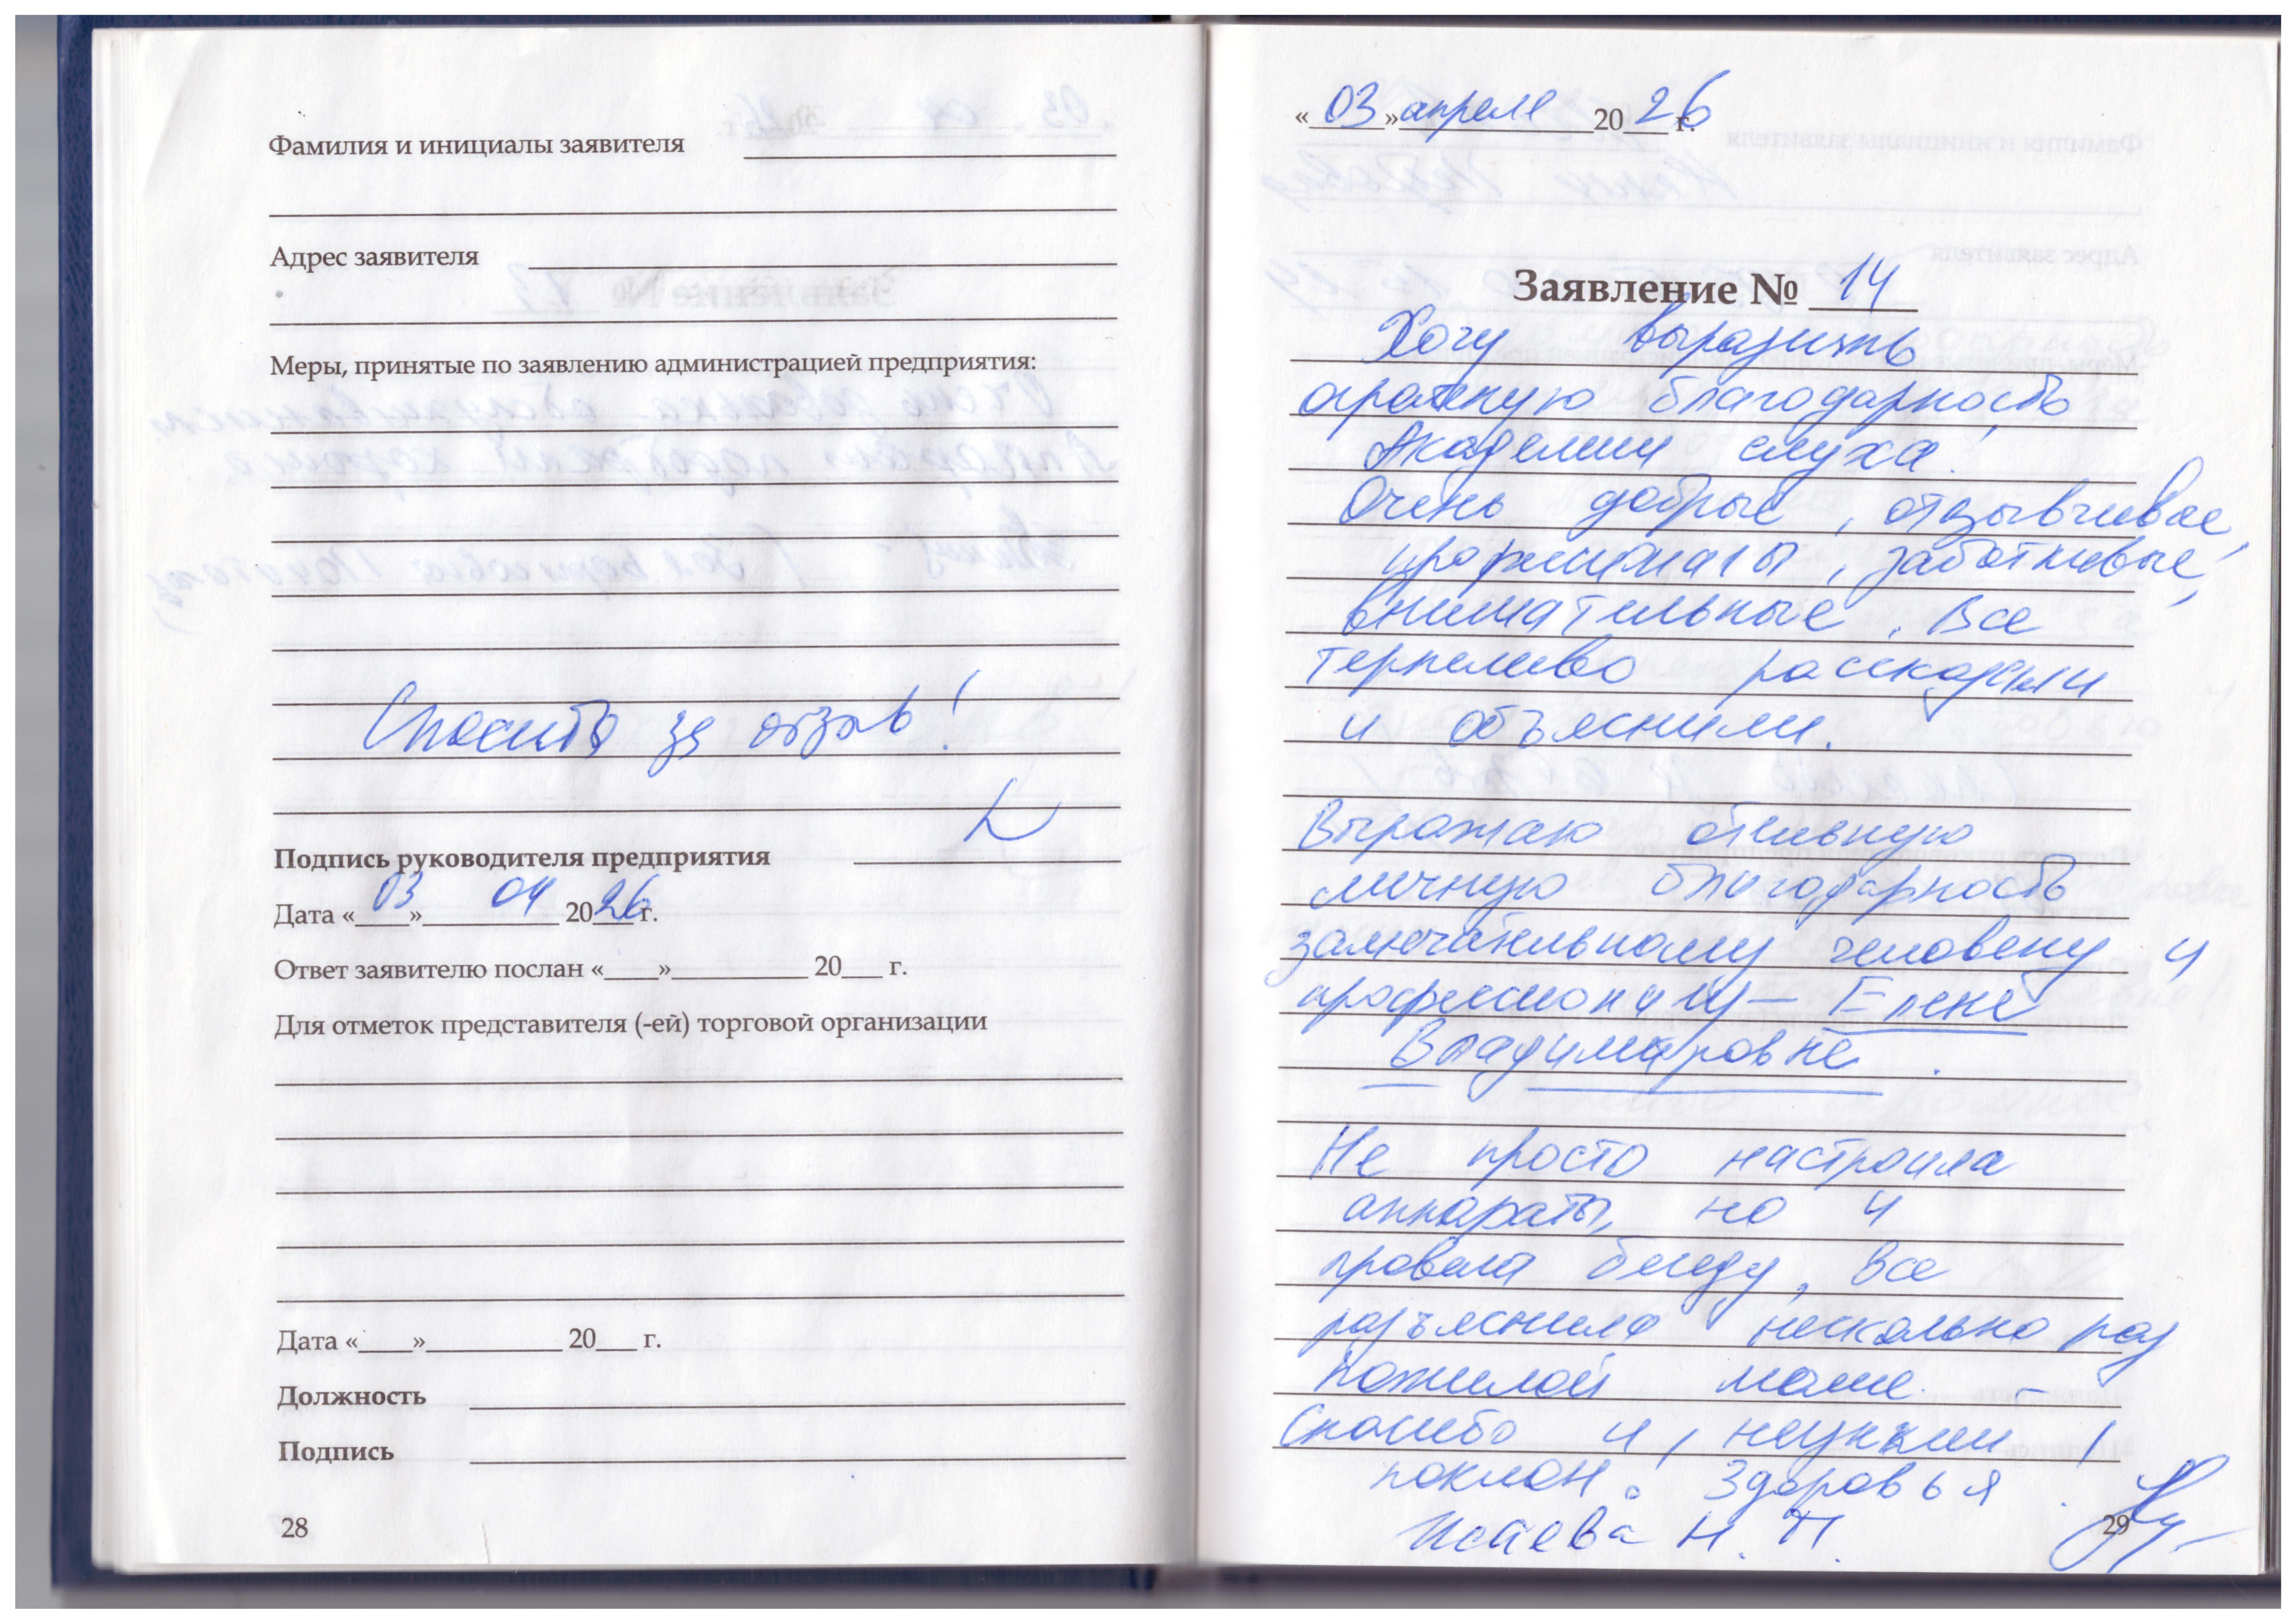 Фамилия и инициалы заявителя
Адрес заявителя
Меры, принятые по заявлению администрацией предприятия:
Спасибо за отзыв!
Подпись руководителя предприятия
Дата «03» 04 2026 г.
Ответ заявителю послан «____»__________ 20___ г.
Для отметок представителя (-ей) торговой организации
Дата «____»__________ 20___ г.
Должность
Подпись
28
«03» апреля 2026 г.
Заявление № 14
Хочу выразить
огромную благодарность
Академии слуха!
Очень добрые, отзывчивые,
профессионалы, заботливые,
внимательные. Все
терпеливо рассказали
и объяснили.
Выражаю отдельную
личную благодарность
замечательному человеку и
профессионалу — Елене
Владимировне.
Не просто настроила
аппараты, но и
провела беседу, все
разъяснила несколько раз
пожилой маме –
Спасибо и
поклон! Здоровья!
Исаева Н. П.
29